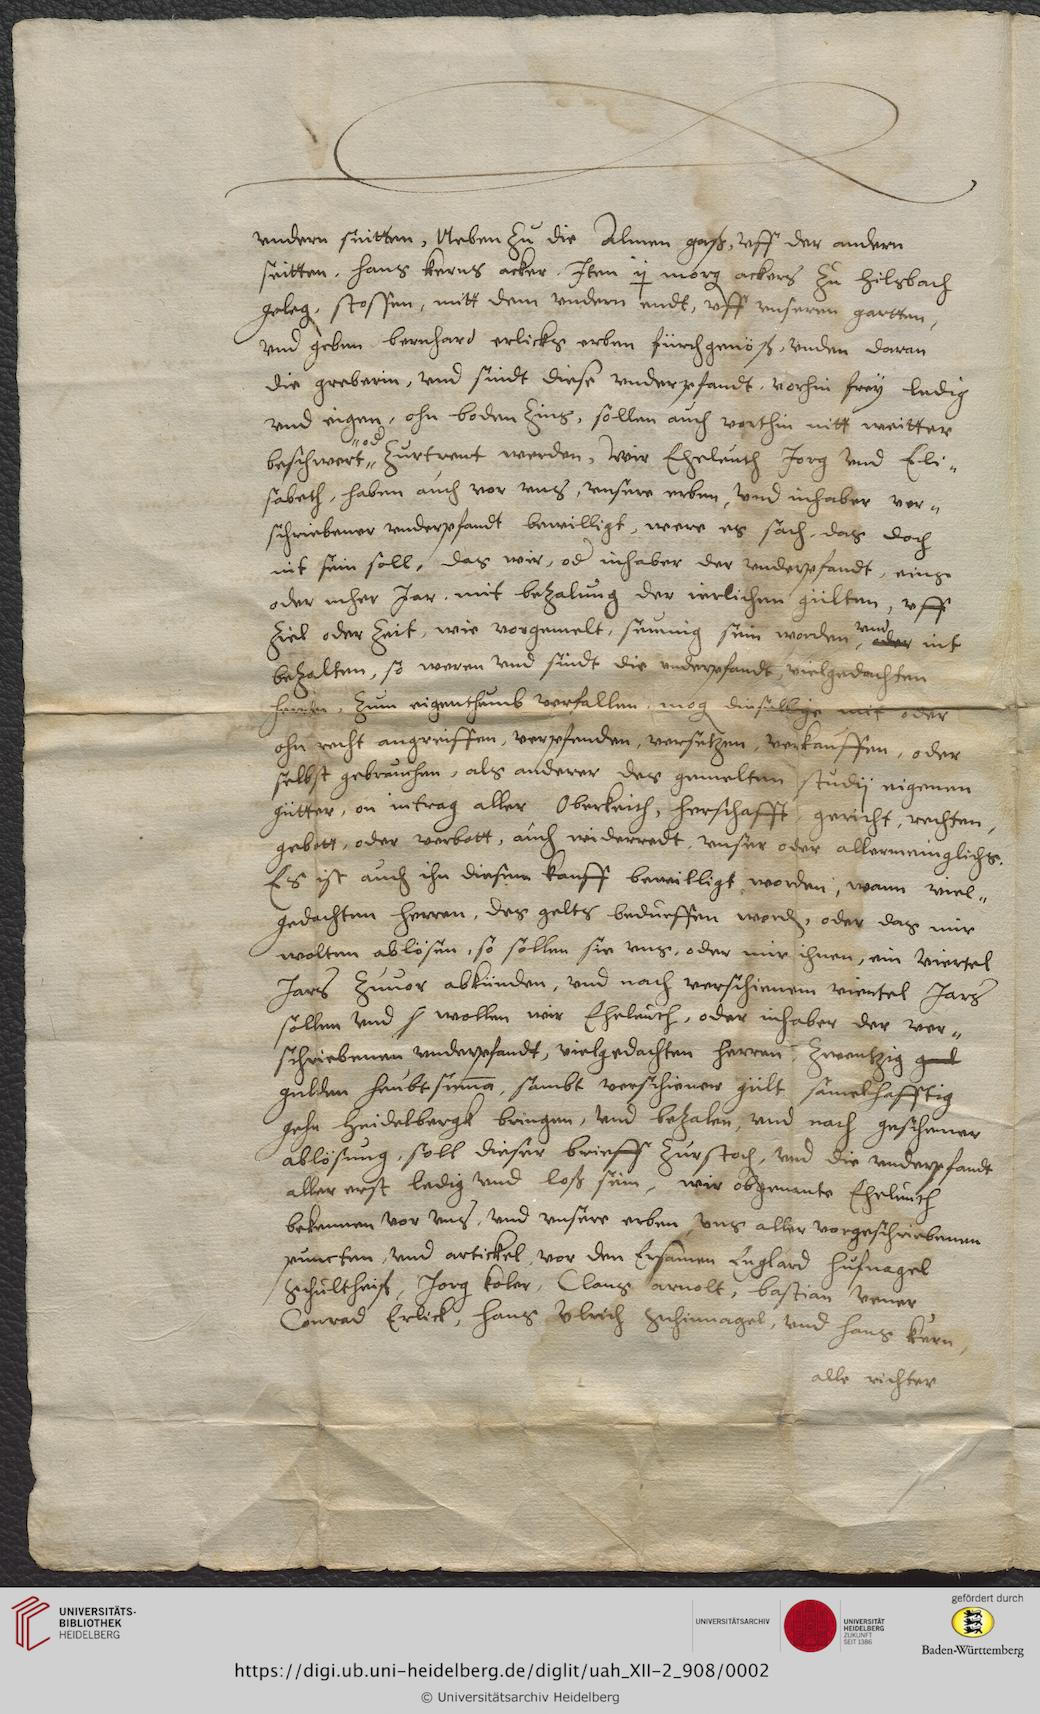 vndern seitten, Neben zu die Almen gaß, vff der andern
seitten. hans kerns acker. Item ij morg ackers zu hilsbach
geleg, stossen, mitt dem vndern endt, vff vnseren gartten,
vnd geben bernhard erlicks erben fürchgenöß, vnden daran
die greberin, vnd sindt diese vnderpfandt. vorhin frey ledig
vnd eigen, ohn boden zins, sollen auch vorthin nitt weitter
beschwert od zurtrent werden, Wir Eheleuth Jorg vnd Eli-
sabeth, haben auch vor vns, vnsere erben, vnd inhaber ver-
schriebener vnderpfandt bewilligt, were es sach, das doch
nit sein soll, das wir, od inhaber der vnderpfandt, eins
oder mher Jar. mit bezalung der ierlichen gülten, vff
ziel oder zeit, wie vorgemelt, seumig sein worden, vnd oder nit
bezalten, so weren vnd sindt die vnderpfandt, vielgedachten
herren, zum eigenthumb verfallen, mog dieselbige mit oder
ohn recht angreiffen, verpfenden, versetzen, verkauffen, oder
selbst gebrauchen, als anderer des gemelten studij eigenen
gütter, on intrag aller Oberkeith, herschafft, gericht, rechten,
gebott, oder verbott, auch widerredt, vnser oder allermeinglichs.
Es ist auch ihn diesem kauff bewilligt worden, wann viel-
gedachten herren, des gelts bedürffen word, oder das mir
wolten ablösen, so sollen sie vns, oder mir ihnen, ein viertel
Jars zuuor abkünden, vnd nach verschienem viertel Jars
sollen vnd wollen wir Eheleuth, oder inhaber der ver-
schriebenen vnderpfandt, vielgedachten herren zwentzig gul
gulden heubt suma, sambt verschiener gült samelhafftig
gehn Heidelbergk bringen, vnd bezalen, vnd nach geschener
ablösung, soll dieser brieff zurstoch, vnd die vnderpfandt
aller erst ledig vnd loß sein, wir obgenante Eheleuth
bekennen vor vns, vnd vnsere erben, vns aller vorgeschriebenen
puncten, vnd artickel, vor den Ersamen Englard hufnagel
Schultheiß, Jorg koler, Clans arnolt, bastian vener
Conrad Erlick, hans Vlrich Schinnagel, vnd hans kern,
alle richter
UNIVERSITÄTS-
BIBLIOTHEK
HEIDELBERG
UNIVERSITÄTSARCHIV
UNIVERSITÄT
HEIDELBERG
ZUKUNFT
SEIT 1386
gefördert durch
Baden-Württemberg
https://digi.ub.uni-heidelberg.de/diglit/uah_XII-2_908/0002
© Universitätsarchiv Heidelberg